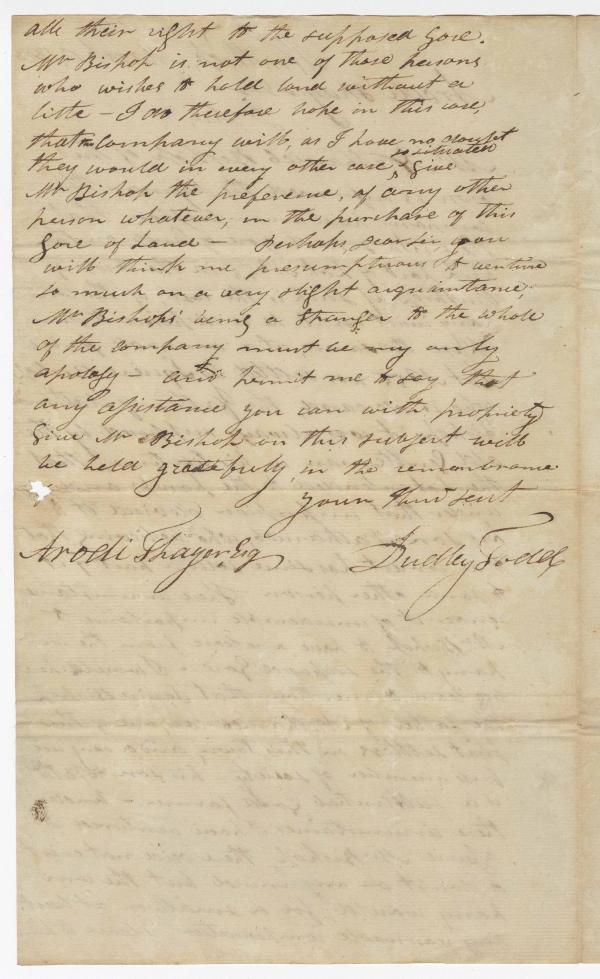 all their right to the supposed Gore.
Mr Bishop is not one of those persons
who wishes to hold land without a
title – I do therefore hope in this case,
that the company will, as I have no doubt
they would in every other case so situated Give
Mr Bishop the preference, of any other
person whatever, in the purchase of this
Gore of Land – Perhaps, dear sir, you
will think me presumptuous to venture
so much on a very slight acquaintance,
Mr Bishops' being a Stranger to the whole
of the company must be my only
apology – and permit me to say that
any assistance you can with propriety
Give Mr Bishop on this subject will
be held gratefully in the remembrance
your Humb sert
Arodi Thayer, Esq Dudley Todd